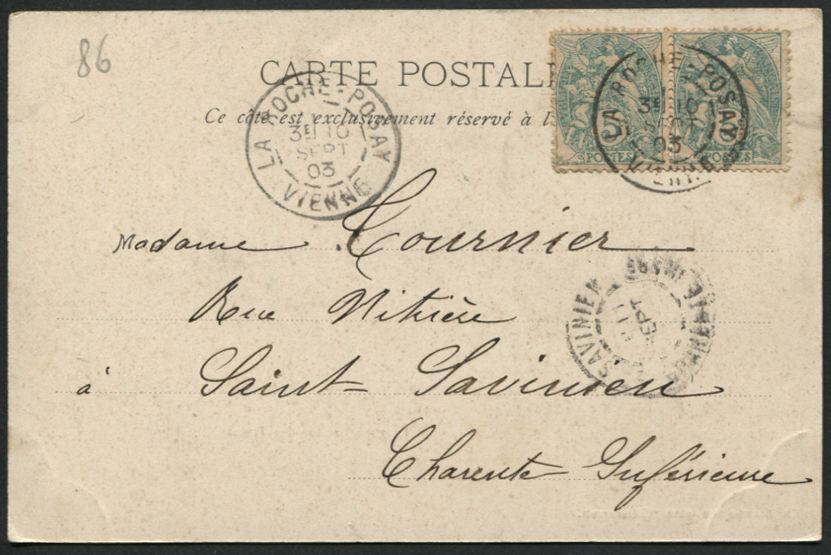 86
CARTE POSTALE
Ce côté est exclusivement réservé à l
LA ROCHE-POSAY
3E 10
SEPT
03
VIENNE
LA ROCHE-POSAY
3E 10
SEPT
03
VIENNE
POSTES
POSTES
Madame Cournier
Rue Nitrière
à Saint-Savinien
Charente Inférieure
SAVINIEN
11
SEPT